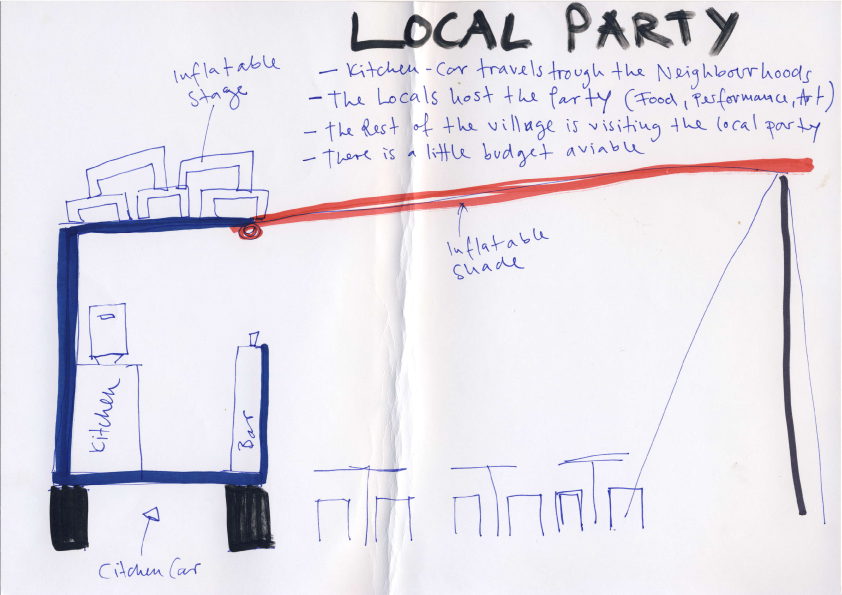 LOCAL PARTY
- Kitchen-Car travels trough the Neighbourhoods
- The Locals host the Party (Food, Performance, Art)
- The Rest of the village is visiting the local party
- There is a little budget aviable
Inflatable
Stage
Inflatable
Shade
Kitchen
Bar
Citchen Car